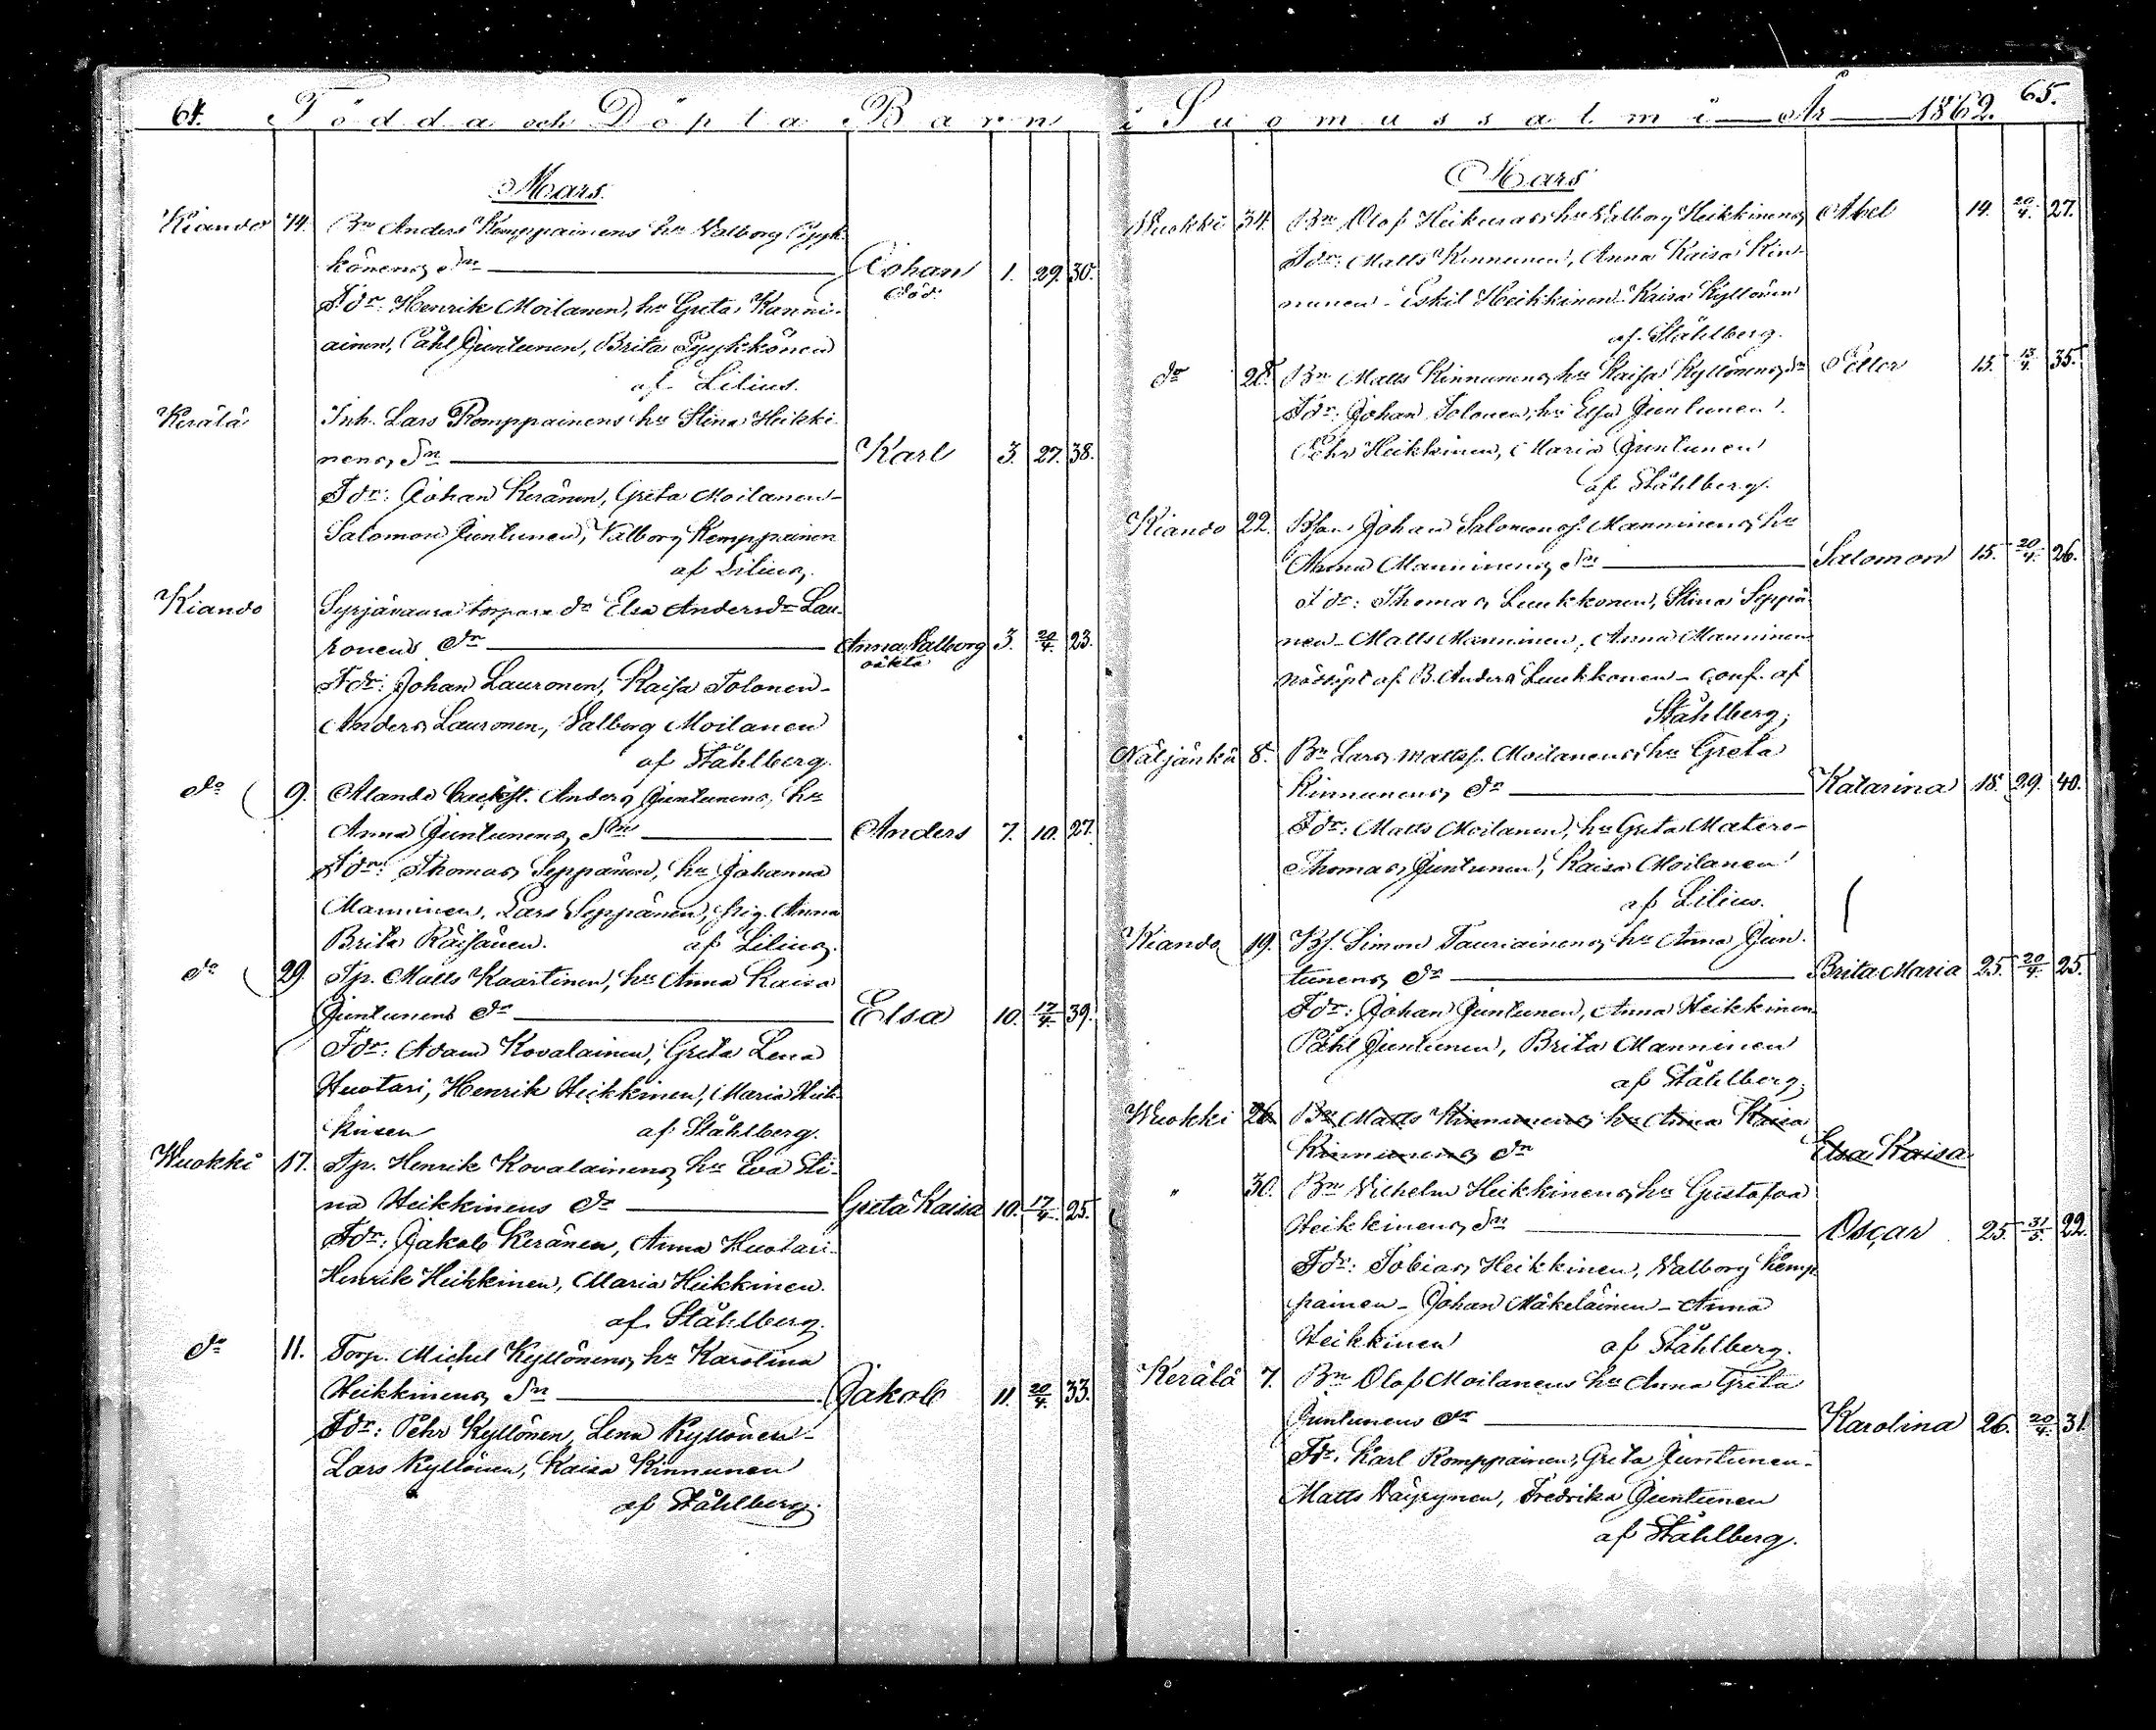 64. Födda och Döpta Barn
Mars.
Kiando 14. Bn Anders Komppainens hu Valborg Pyyk-
könens, Sn Johan 1. 29. 30.
död.
Fdr: Henrik Moilanen, hu Greta Kanni-
ainen, Påhl Juntunen, Brita Pyykkönen
af Lilius.
Kerälä Inh. Lars Romppainens hu Stina Heikki-
nens, Sn Karl 3. 27. 38.
Fdr: Johan Keränen, Greta Moilanen-
Salomon Juntunen, Valborg Kemppainen
af Lilius.
Kiando Syrjävaara torpare dr Elsa Andersdr Lau-
ronens dr Anna Valborg 3. 20/4. 23.
oäkta
Fdr: Johan Lauronen, Kaisa Tolonen-
Anders Lauronen, Valborg Moilanen
af Ståhlberg.
do 9. Alando Anders Juntunens, hu
Anna Juntunens, Sn Anders 7. 10. 27.
Fdr: Thomas Seppänen, hu Johanna
Manninen, Lars Seppänen, pig. Anna
Brita Räisänen. af Lilius.
do 29. Tp. Matts Kaartinen, hu Anna Kaisa
Juntunens dr Elsa 10. 17/4. 39.
Fdr: Adam Kovalainen, Greta Lena
Huotari, Henrik Heikkinen, Maria Heik-
kinen af Ståhlberg.
Wuokki 17. Tp. Henrik Kovalainens, hu Eva Sti-
na Heikkinens dr Greta Kaisa 10. 17/4. 25.
Fdr: Jakob Keränen, Anna Huotari-
Henrik Heikkinen, Maria Heikkinen.
af Ståhlberg.
do 11. Torp. Michel Kyllönens, hu Karolina
Heikkinens, Sn Jakob 11. 20/4. 33.
Fdr: Pehr Kyllönen, Lena Kyllönen-
Lars Kyllönen, Kaisa Kinnunen
af Ståhlberg.
i Suomussalmi År 1862. 65.
Mars
Wuokki 34. Bn Olof Heikuras hu Valborg Heikkinens, Abel 14. 20/4. 27.
Fdr: Matts Kinnunen, Anna Kaisa Kin-
nunen- Eskil Heikkinen- Kaisa Kyllönen
af Ståhlberg.
do 28. Bn Matts Kinnunens, hu Kaisa Kyllönens, Sn Petter 15. 13/4. 35.
Fdr: Johan Tolonen, hu Elsa Juntunen.
Pehr Heikkinen, Maria Juntunen
af Ståhlberg.
Kiando 22. Bson Johan Salomonss. Manninens, hu
Anna Manninens, Sn Salomon 15. 20/4. 26.
Fdr: Thomas Luukkonen, Stina Seppä-
nen- Matts Manninen, Anna Manninen
nöddöpt af B. Anders Luukkonen- conf. af
Ståhlberg;
Näljänkä 8. Bn Lars Mattss. Moilanens hu Greta
Kinnunens, dr Katarina 18. 29. 40.
Fdr: Matts Moilanen, hu Greta Matero-
Thomas Juntunen, Kaisa Moilanen
af Lilius.
Kiando 19. Bs. Simon Tauriainens, hu Anna Jun-
tunens, dr Brita Maria 25. 20/4. 25.
Fdr: Johan Juntunen, Anna Heikkinen
Påhl Juntunen, Brita Manninen
af Ståhlberg;
Wuokki 26. Bn Matts Kinnunens, hu Anna Kaisa
Kinnunens, dr Elsa Kaisa
" 30. Bn Vilhelm Heikkinens, hu Gustafva
Heikkinens, Sn Oscar 25. 31/5. 22.
Fdr: Tobias Heikkinen, Valborg Kemp-
painen- Johan Mäkeläinen- Anna
Heikkinen af Ståhlberg.
Kerälä 7. Bn Olof Moilanens hu Anna Greta
Juntunens dr Karolina 26. 20/4. 31.
Fdr. Karl Romppainen, Greta Juntunen-
Matts Väyrynen, Fredrika Juntunen
af Ståhlberg.